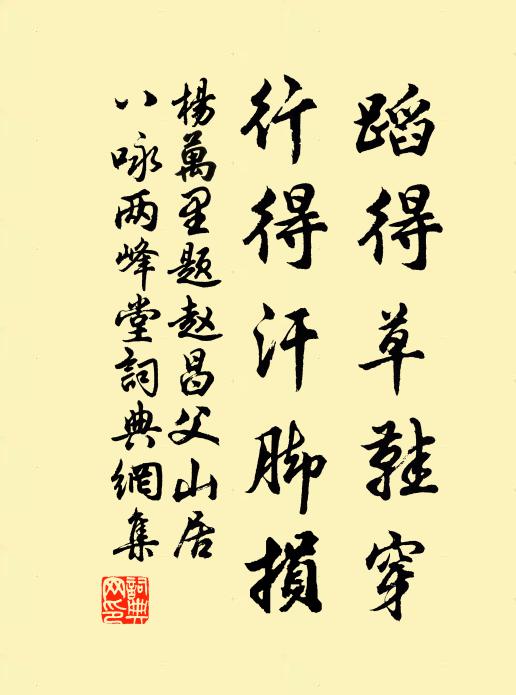 蹈得草鞋穿
行得汗脚損
楊萬里题赵昌父山居
八咏两峰堂詞典網集
詞典网印